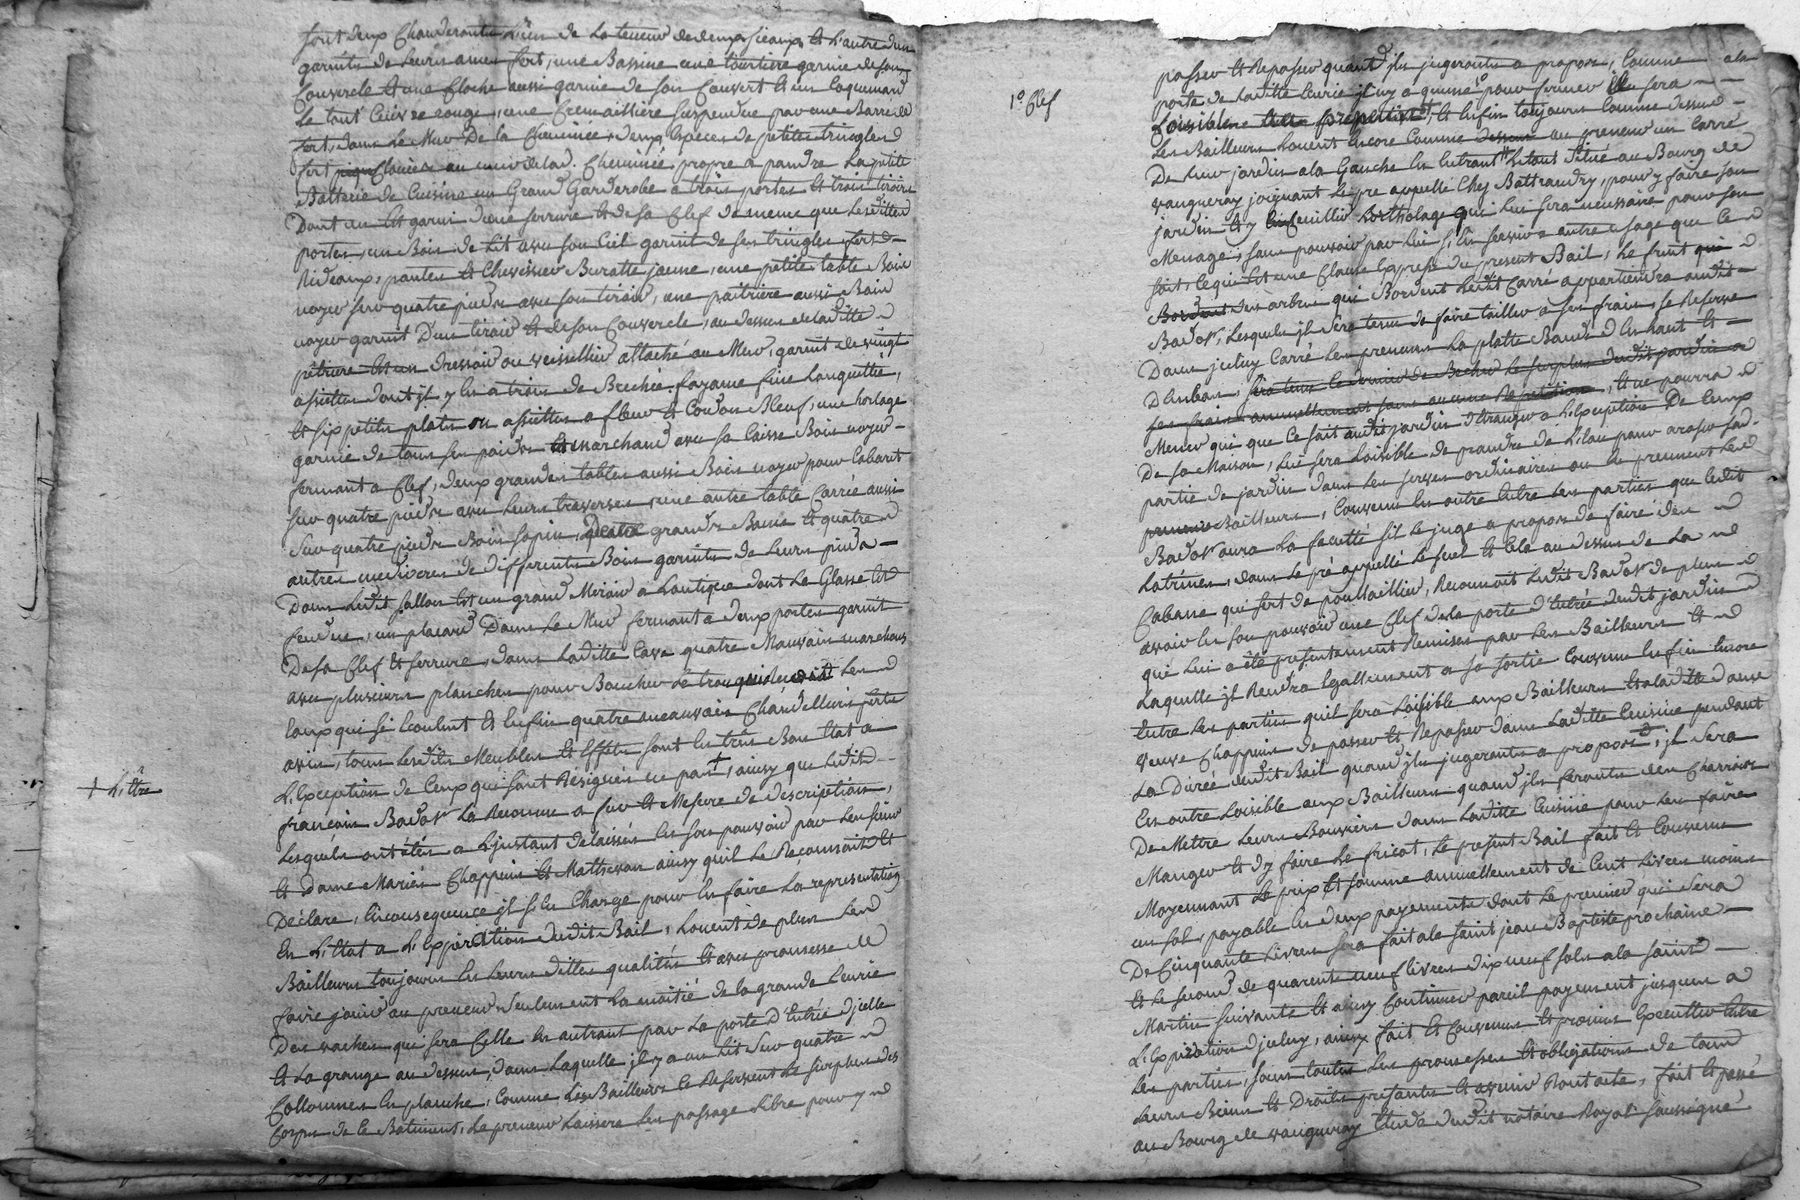 sont deux Chauderants L'un de La teneur de deux seaux et L'autre d'un
garnits de Leurs ances fert, une Bassine une tourtiere garnie de son
Couvercle et une Cloche aussi garnie de son Couvert et un Coquemard
Le tout Cuivre rouge, une Cremaillière suspendue par une Barre de
fert, dans Le Mur De la Cheminée, deux Especes de petites tringles d
fert Clouées au mur de lad. Cheminée propre a pandre La petite
Batterie de Cuisine un Grand Garderobe a trois portes et trois tiroirs
Dont un est garni d'une serrure et de sa Clef de meme que Lesdittes
portes, un Bois de Lit avec son Ciel garnit de ses tringles fert d
Rideaux, pantes et Chevissier Buratte jaune, une petite table Bois
noyer sur quatre pieds avec son tiroir, une paitriere aussi Bois
noyer garnit D'un tiroir et de son Couvercle, au dessus de laditte
pétriere est un Dressoir ou veissellier attaché au Mur, garnit de vingt
assiettes dont il y en a trois de Brechée, fayance fine Languettée,
et six petits plats ou assiettes a fleur et Cordon Bleuf, une horloge
garnie de tous ses poids et marchand avec sa Caisse Bois noyer
fermant a Clef, deux grandes tables aussi Bois noyer pour Cabaret
sur quatre pieds avec Leurs traverses, une autre table Carrée aussi
sur quatre pieds Bois sapin, quatre grands Bancs et quatre
autres mediocres de differents Bois garnits de Leurs pieds
Dans Ledit sallon est un grand Miroir a Lantique dont La Glasse est
fendue, un placard Dans Le Mur fermant a deux portes garnit
De sa Clef et serrure, dans Laditte Cave quatre Mauvais marchons
avec plusieurs planches pour Boucher Le trou Les
Eaux qui si Ecoulent et Enfin quatre meauvais Chandelliers fert
avis, tous Lesdits Meubles et Effets sont En très Bon Etat a
L'Exception de Ceux qui sont Désignés ne pas + ainsy que Ledit
+ L'être
françois Bador La Reconnu a fur et Mesure de description,
Lesquels ont étés a L'instant delaissés En son pouvoir par Les sieur
et Dame Mariés Chappuis et Mathevon ainsy qu'il Le Reconnoit et
Déclare, Enconsequence il s'En Charge pour En faire La representation
En L'Etat a L'Expiration dudit Bail, Louent de plus Les d
Bailleurs toujours En Leurs dittes qualités et avec promesse de
faire jouir au preneur Seulement La moitié de la grande Ecurie
Des vaches qui sera Celle En entrant par La porte d'Entrée d'jcelle
et La grange au dessus, dans Laquelle il y a un Lit Sur quatre
Collonnes En planche, Comme Les Bailleurs Ce Reservent Le surplus des
Corps de Ce Batiment, Le preneur Laissera Les passage Libre pour y
passer et Repasser quand jls jugeronts a propos, Comme a la
porte de Laditte Ecurie jl n'y a qu'une 1° pour fermer sera
1° Clef
Loissible et Enfin toujours Comme dessus
Les Bailleurs Louent Encore Comme dessus au preneur un Carré
De Leur jardin a la Gauche En Entrant Le tout Situé au Bourg de
vaugneray joignant Le pré appellé Chez Battrandry, pour y faire son
jardin et y Cueuillir Lortholage qui Lui sera necessaire pour son
Menage, sans pouvoir par Lui s'En servir a autre usage que Ce
soit, Ce qui Est une Clause Expresse du present Bail, Le fruit
des arbres qui Bordent Ledit Carré appartiendra audit
Bador, Lesquels jl sera tenu de faire tailler a ses frais, se Reserve
Dans jceluy Carré Les preneurs La platte Bande d'En haut et
D'Enbas, sera tenu Le dernier de Becher Le surplus dudit jardin a
ses frais annuellement sans aucune Repetition, et ne pourra
Mener qui que Ce soit audit jardin Etranger a L'Exception De Ceux
De sa Maison, Lui sera Loisible de prandre de L'Eau pour aroser sad.
partie de jardin dans Les serves ordinaires ou La prennent Led
Bailleurs, Convenu En outre Entre Les parties que Ledit
Bador aura La faculté s'il Le juge a propos de faire des
Latrines, dans Le pré appellé Le suel et Cela au dessus de La
Cabane qui sert de poullaillier, Reconnoit Ledit Bador de plus
avoir En son pouvoir une Clef de la porte d'Entrée dudit jardin
qui Lui a été presentement Remises par Les Bailleurs et
Laquelle jl Rendra Egallement a sa sortie Convenu Enfin Encore
Entre Les parties qu'il sera Loissible aux Bailleurs et a laditte dame
veuve Chappuis de passer et Repasser dans Laditte Cuisine pendant
La Durée dudit Bail quand jls jugeronts a propos, jl Sera
En outre Loissible aux Bailleurs quand jls feronts des Charrois
De Mettre Leurs Bouviers dans Laditte Cuisine pour Les faire
Manger et d'y faire Le fricot, Le present Bail fait et Convenu
Moyennant Le prix et somme annuellement de Cent Livres moins
un sol, payable En deux payements dont Le premier qui Sera
De Cinquante Livres sera fait a la saint jean Baptiste prochaine
et Le second de quarente neuf livres dix neuf sols a la saint
Martin suivante et ainsy Continuer pareil payement jusques a
L'Expiration d'jceluy, ainsy fait et Convenu et promis Executter Entre
Les parties, sous toutes Les promesses et obligations de tous
Leurs Biens et Droits présents et avenir fait et passé
au Bourg de vaugneray Etude dudit notaire Royal soussigné